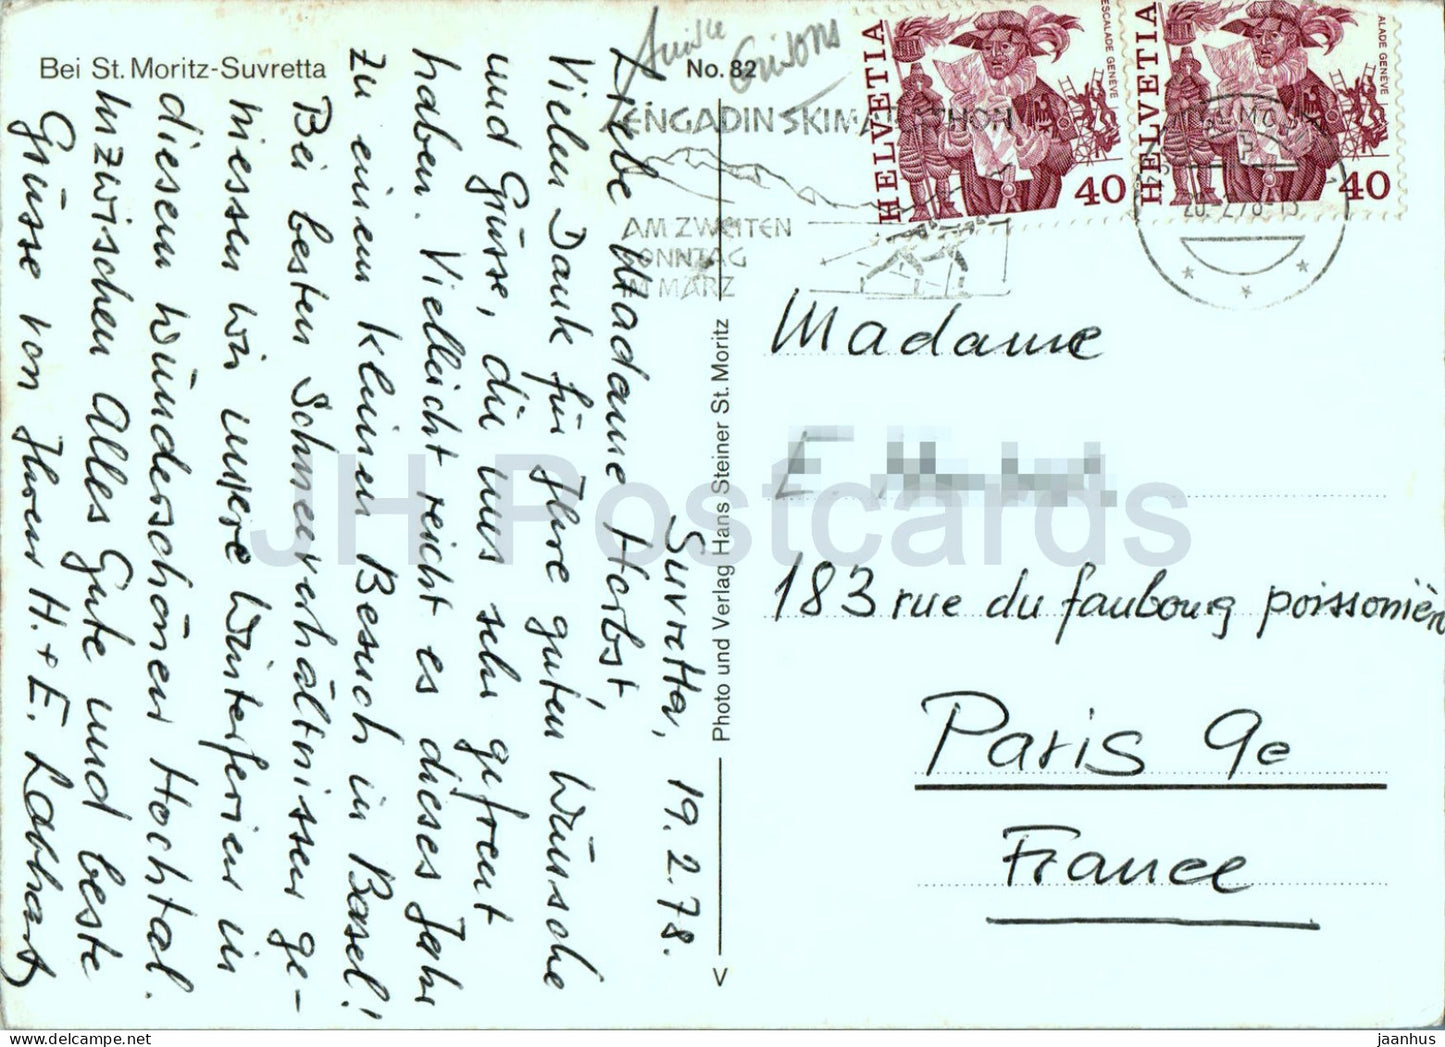 Bei St. Moritz-Suvretta
No. 82
Suisse
Grisons
ENGADIN SKIMARATHON
AM ZWEITEN
SONNTAG
IM MÄRZ
HELVETIA
ESCALADE GENÈVE
40
HELVETIA
ALADE GENÈVE
40
20. 2. 78. 13
Suvretta, 19.2.78.
Liebe Madame Herbst,
Vielen Dank für Ihre guten Wünsche
und Grüsse, die uns sehr gefreut
haben. Vielleicht reicht es dieses Jahr
zu einem kleinen Besuch in Basel!
Bei besten Schneeverhältnissen ge-
niessen wir unsere Winterferien in
diesem wunderschönen Hochtal.
Inzwischen Alles Gute und beste
Grüsse von Ihren H. + E. Labhart
Photo und Verlag Hans Steiner St. Moritz
Madame
E.
183 rue du faubourg poissonièr
Paris 9e
France
JH Postcards
jaanhus - delcampe.net